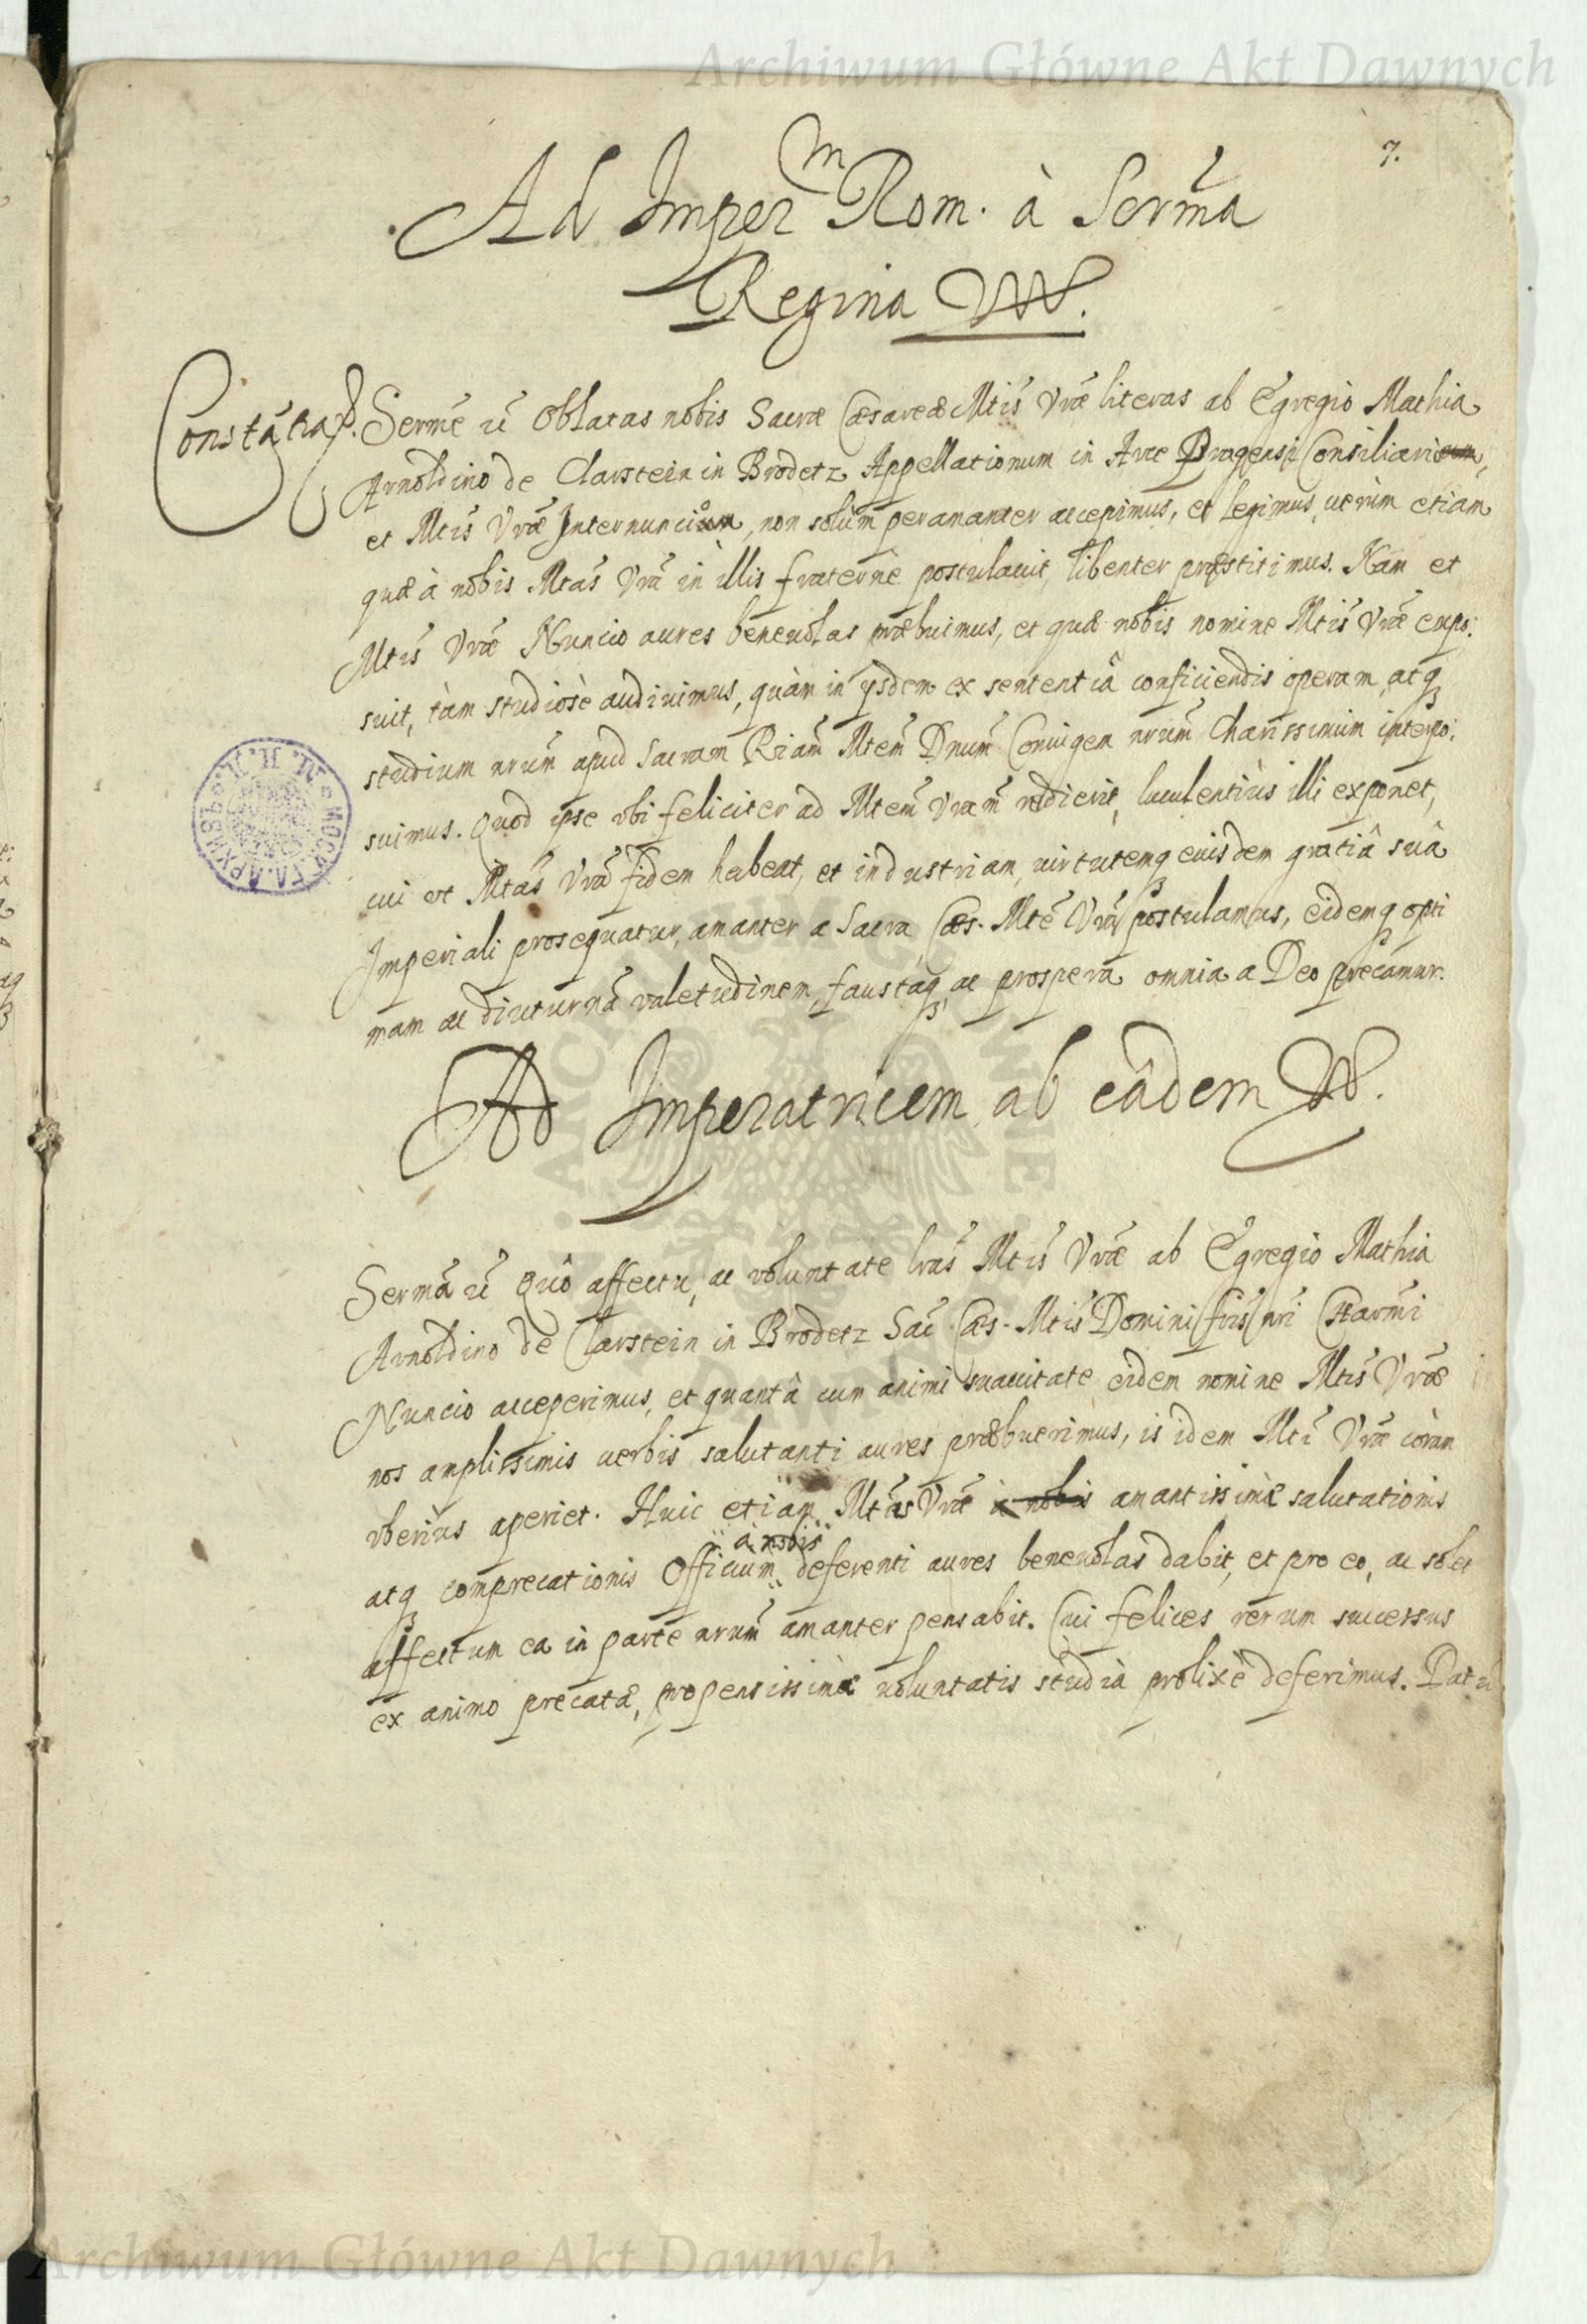 Archiwum Główne Akt Dawnych
7.
Ad Imper^m Rom. à Serm̃a
Regina
Constãtia
Serm̃e Oblatas nobis Sacræ Cæsareæ Mtĩs Vrã̃e literas ab Egregio Mathia
Arnoldino de Clarstein in Brodetz Appellationum in Arce Pragensi Consiliario,
et Mtĩs Vrã̃e Internuncio, non solùm peramanter accepimus, et legimus, uerùm etiam
quæ à nobis Mtãs Vrã in illis fraternè postulauit, libenter præstitimus. Nam et
Mtĩs Vrã̃e Nuncio aures beneuolas præbuimus, et quæ nobis nomine Mtĩs Vrã̃e expo:
suit, tàm studiosè audiuimus, quàm in ysdem ex sententiâ conficiendis operam, atq
studium nrũm apud Sacram Riam̃ Mtem̃ Dnum̃ Coniugem nrũm Charissimum interpo:
suimus. Quod ipse vbi feliciter ad Mtem̃ Vram̃ redierit, luculentiùs illi exponet,
cui vt Mtãs Vrã fidem habeat, et industriam, uirtutemq eiusdem gratiâ suâ
Imperiali prosequatur, amanter a Sacra Cæs. Mtẽ Vrã postulamus, eidemq opti
mam ac diuturnã valetudinem, faustaq, ac prospera omnia a Deo precamur.
Ad Imperatricem ab eâdem
Serm̃a Quô affectu, ac voluntate lrãs Mtĩs Vrã̃e ab Egregio Mathia
Arnoldino de Clarstein in Brodetz Sac̃ Cæs. Mtĩs Domini frĩs nrĩ Charm̃i
Nuncio acceperimus, et quantâ cum animi suauitate eidem nomine Mtĩs Vrã̃e
nos amplissimis uerbis salutanti aures præbuerimus, is idem Mtĩ Vrã̃e coràm
vberius aperiet. Huic etiam Mtãs Vrã à nobis amantissimæ salutationis
à nobis
atq comprecationis Officium deferenti aures beneuolas dabit, et pro eo, ac solet
affectum ea in parte nrũm amanter pensabit. Cui felices rerum successus
ex animo precatæ, propensissimæ uoluntatis studia prolixè deferimus. Datũ
Archiwum Główne Akt Dawnych